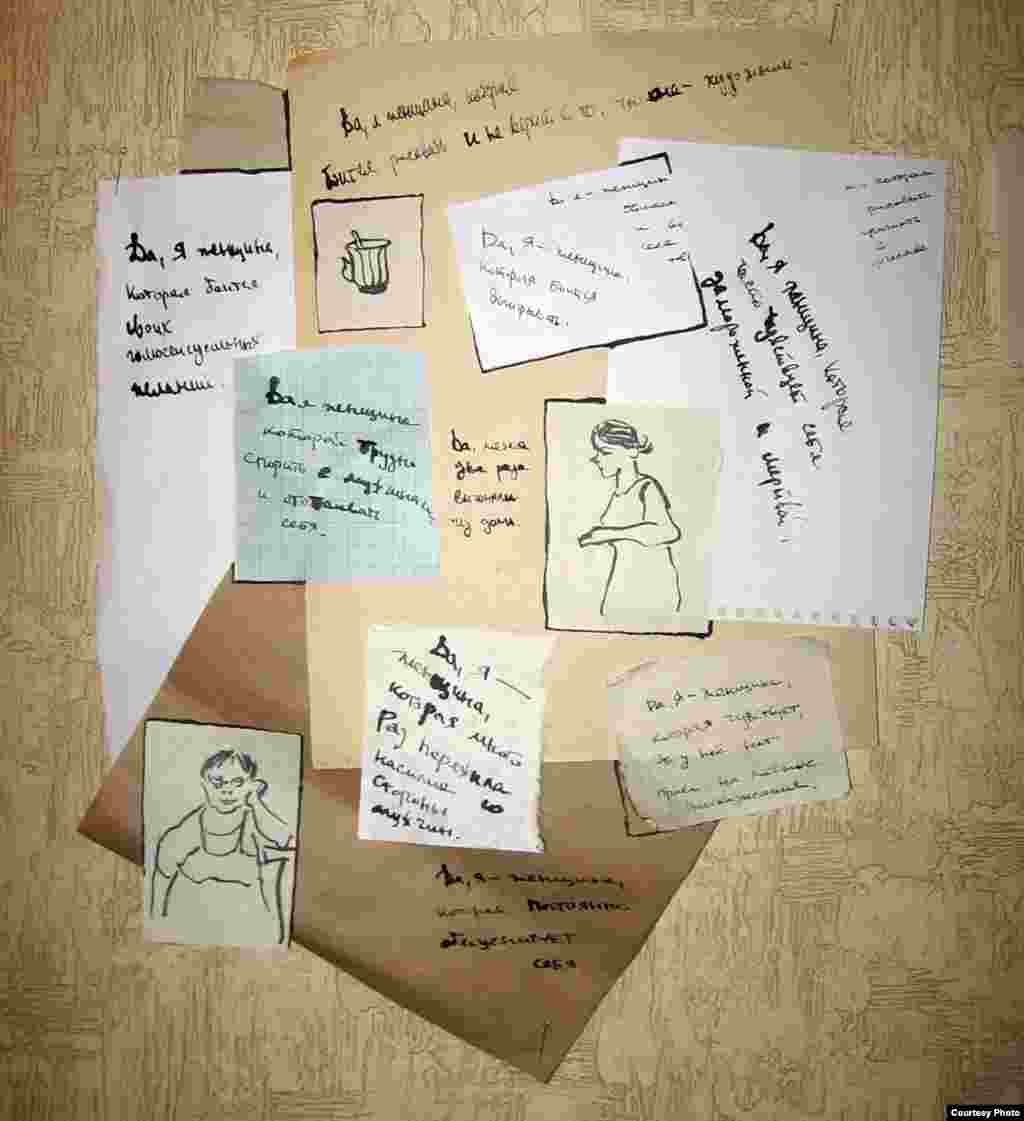 Да, я женщина, которая
боится рисовать и не верит в то, что она - художник.
Да, я женщина,
которая боится
своих
гомосексуальных
желаний.
Да, я - женщина
Да, я - женщина,
которая боится
выигрывать.
которая
Да, я женщина, которая
часто чувствует себя
замороженной и мертвой.
Да я женщина
которой трудно
спорить с мужчинами
и отстаивать
себя.
Да, меня
два раза
выгоняли
из дома.
Да, я —
женщина,
которая много
раз пережила
насилие со
стороны
мужчин.
Да, я - женщина,
которая чувствует,
что у неё нет
прав на личное
Да, я - женщина,
которая постоянно
обесценивает
себя
Courtesy Photo